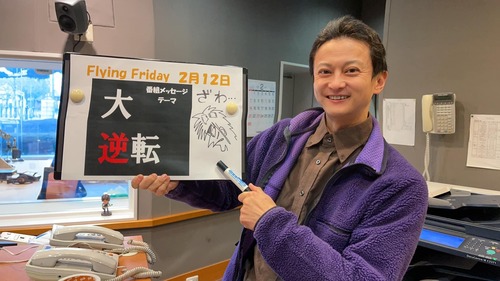 Flying Friday 2月12日
番組メッセージ
テーマ
大
逆転
ざわ…